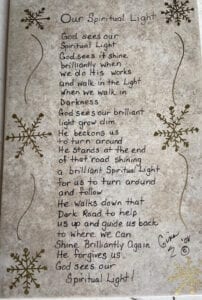 Our Spiritual Light
God sees our
Spiritual Light
God sees it shine
brilliantly when
we do His works
and walk in the Light
When we walk in
Darkness
God sees our brilliant
light grow dim
He beckons us
to turn around
He stands at the end
of that road shining
a brilliant Spiritual Light
for us to turn around
and follow
He walks down that
Dark Road to help
us up and guide us back
to where we can
Shine Brilliantly Again
He forgives us.
God sees our
Spiritual Light!
©